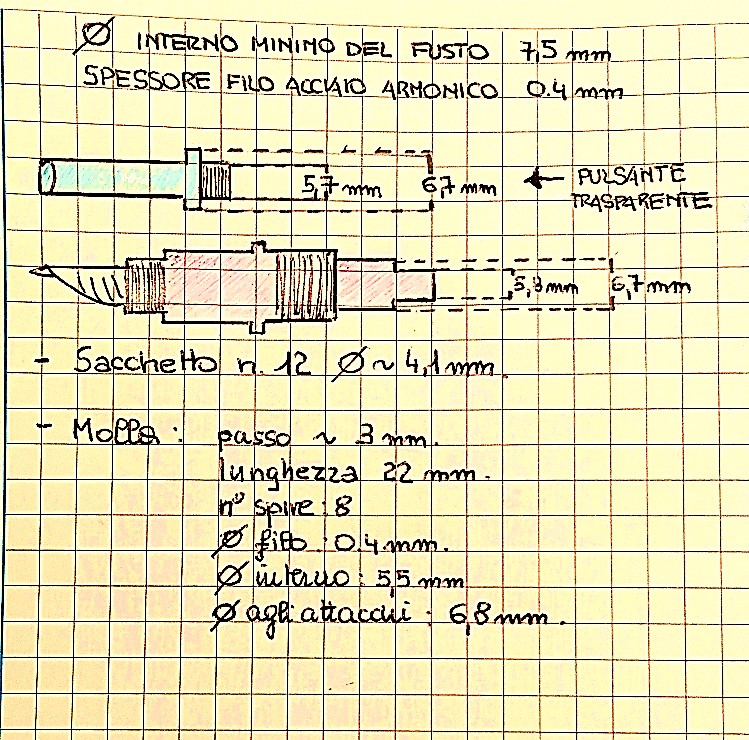 Ø INTERNO MINIMO DEL FUSTO 7,5 mm
SPESSORE FILO ACCIAIO ARMONICO 0.4 mm
5,7 mm 6,7 mm ← PULSANTE
TRASPARENTE
5,3 mm 6,7 mm
- Sacchetto n. 12 Ø ~ 4,1 mm.
- Molla: passo ~ 3 mm.
lunghezza 22 mm.
n° spire: 8
Ø filo: 0.4 mm.
Ø interno: 5,5 mm
Ø agli attacchi: 6,8 mm.